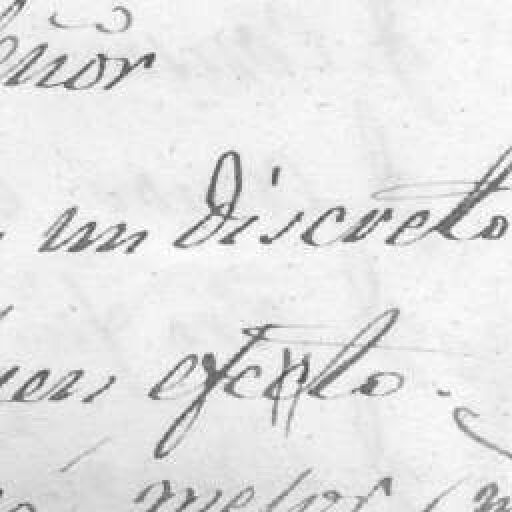 eñor
un discreto
en efecto.
mejor